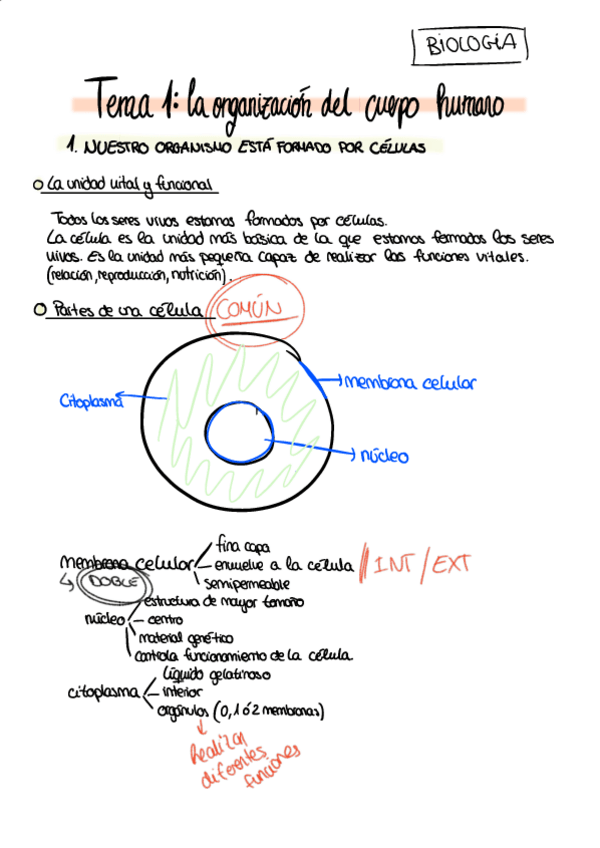 BIOLOGÍA
Tema 1: La organización del cuerpo humano
1. NUESTRO ORGANISMO ESTÁ FORMADO POR CÉLULAS
La unidad vital y funcional
Todos los seres vivos estamos formados por células.
La célula es la unidad más básica de la que estamos formados los seres
vivos. Es la unidad más pequeña capaz de realizar las funciones vitales.
(relación, reproducción, nutrición).
Partes de una célula (COMÚN
membrana celular
Citoplasma
núcleo
fina capa
membrana celular envuelve a la célula // INT / EXT
DOBLE semipermeable
estructura de mayor tamaño
núcleo centro
material genético
controla funcionamiento de la célula
líquido gelatinoso
citoplasma interior
orgánulos (0, 1 ó 2 membranas)
Realizan
diferentes
funciones